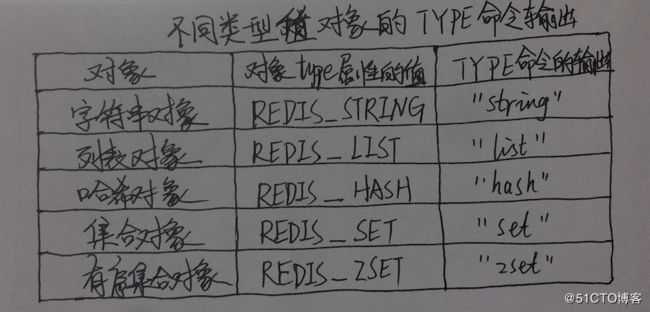 不同类型 对象的TYPE命令输出
对象 对象type属性的值 TYPE命令的输出
字符串对象 REDIS_STRING "string"
列表对象 REDIS_LIST "list"
哈希对象 REDIS_HASH "hash"
集合对象 REDIS_SET "set"
有序集合对象 REDIS_ZSET "zset"
@51CTO博客